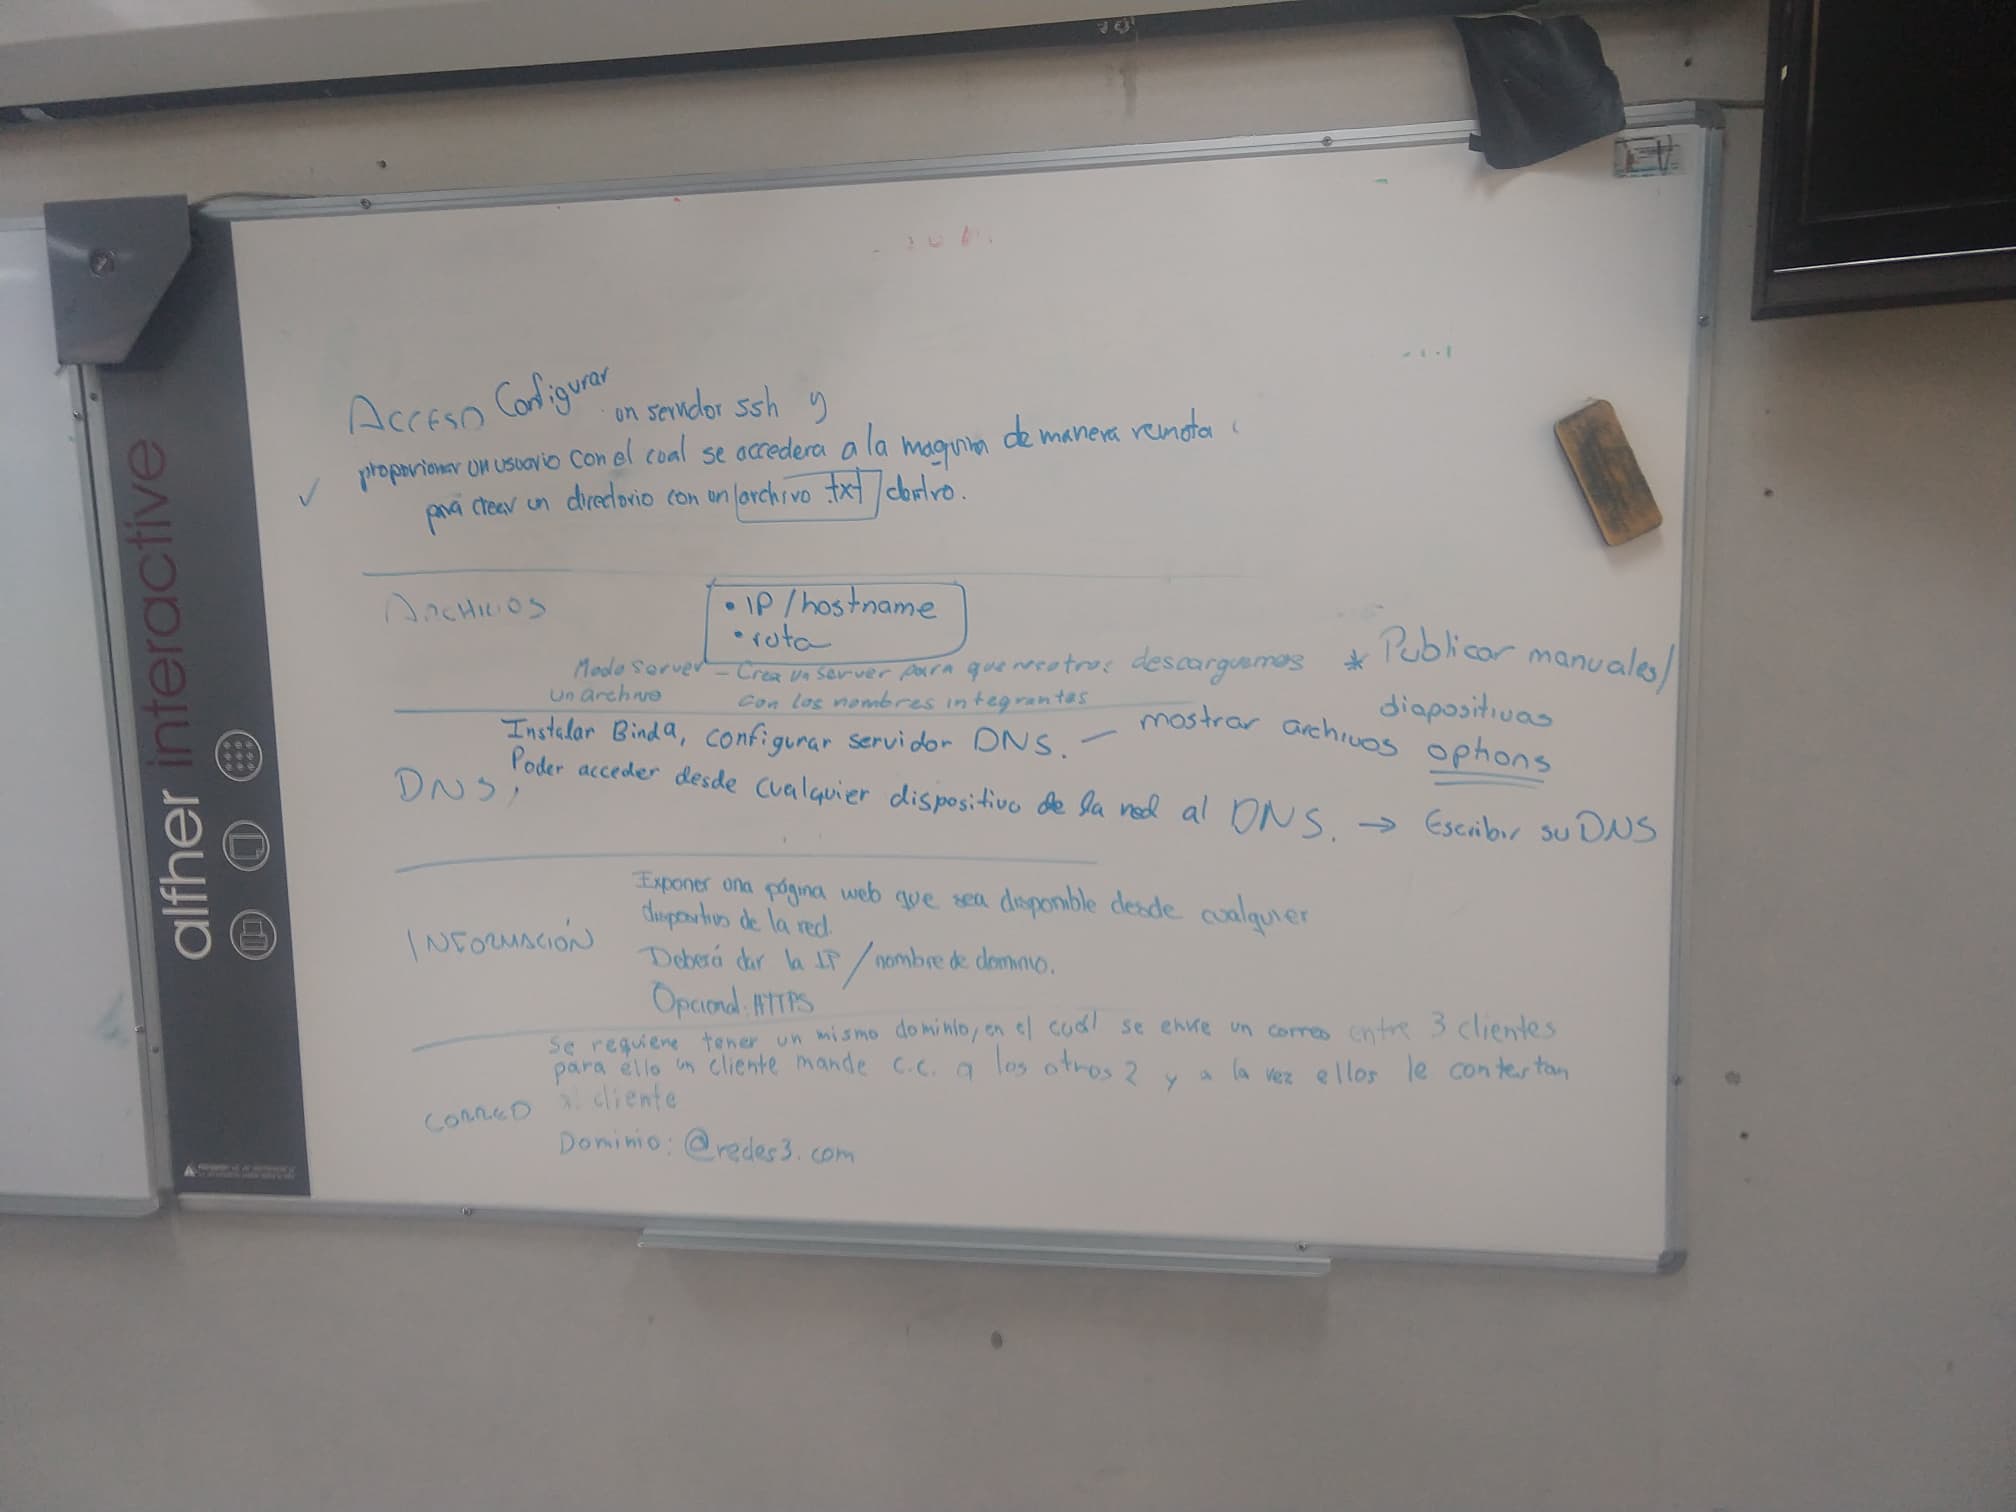 alfher interactive
ACCESO Configurar un servidor ssh y
proporcionar un usuario con el cual se accedera a la maquina de manera remota
para crear un directorio con un archivo .txt dentro.
ARCHIVOS
• IP / hostname
• ruta
Modo server – Crea un server para que nosotros descarguemos
un archivo con los nombres integrantes
* Publicar manuales/
diapositivas
Instalar Bind9, configurar servidor DNS. — mostrar archivos options
DNS, Poder acceder desde cualquier dispositivo de la red al DNS. → Escribir su DNS
INFORMACIÓN
Exponer una página web que sea disponible desde cualquier
dispositivo de la red.
Deberá dar la IP / nombre de dominio.
Opcional: HTTPS
CORREO
Se requiere tener un mismo dominio, en el cuál se envie un correo entre 3 clientes
para ello un cliente mande c.c. a los otros 2 y a la vez ellos le contestan
al cliente
Dominio: @redes3.com